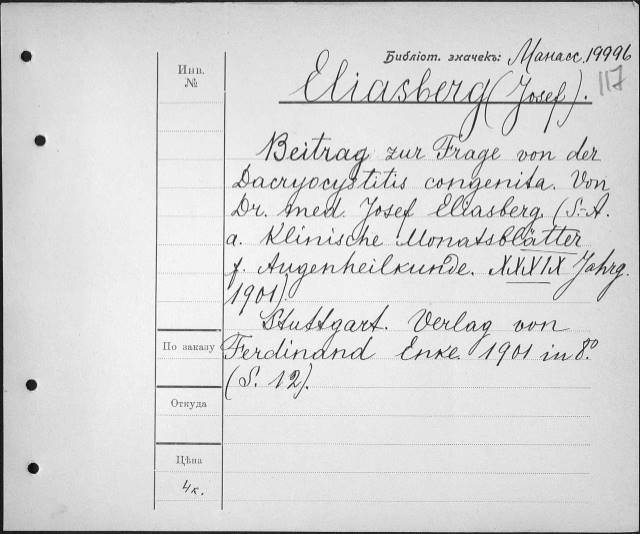 Библіот. значекъ: Манасс. 19996
117
Инв.
№
Eliasberg (Josef).
Beitrag zur Frage von der
Dacryocystitis congenita. Von
Dr. med. Josef Eliasberg (S.-A.
a. Klinische Monatsblätter
f. Augenheilkunde. XXXIX Jahrg.
1901).
Stuttgart. Verlag von
Ferdinand Enke. 1901 in 8º.
(S. 12).
По заказу
Откуда
Цѣна
4к.